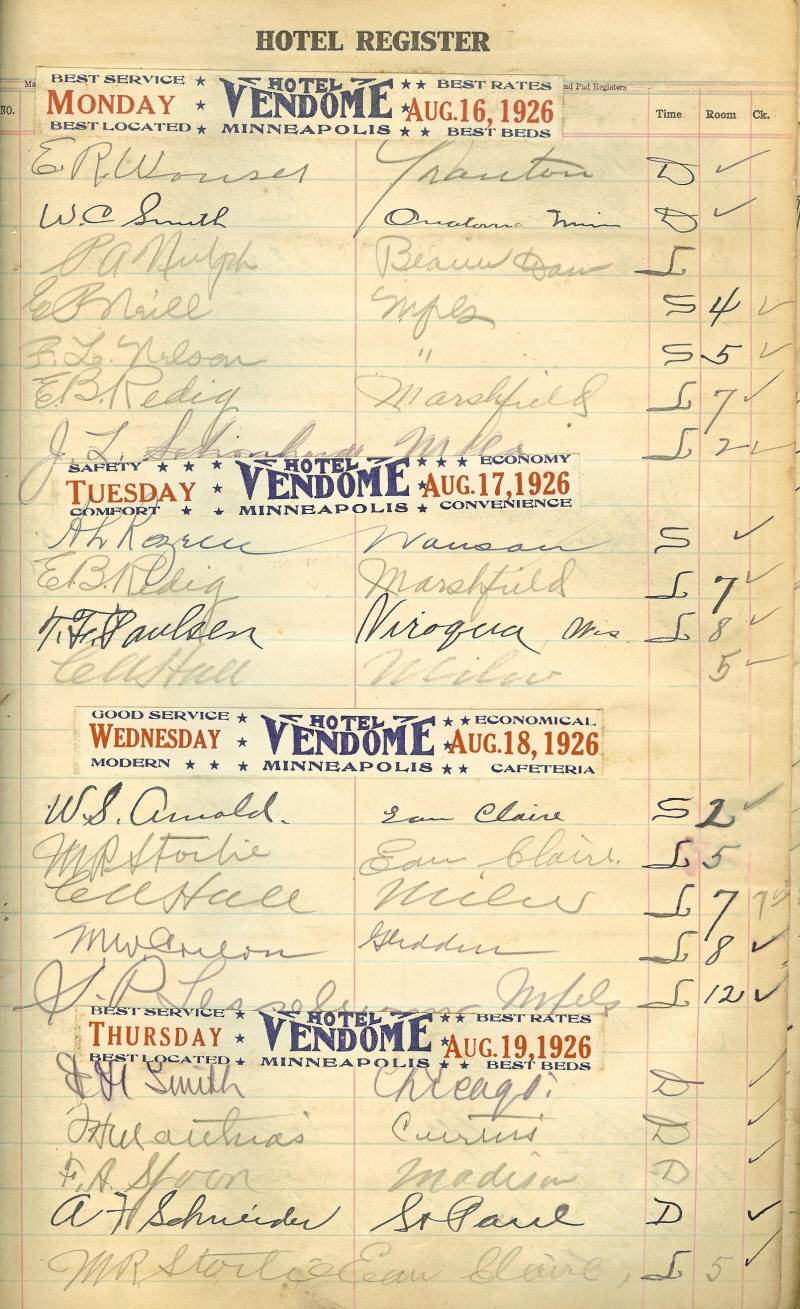 HOTEL REGISTER
and Pad Registers
NO. Time Room Ck.
BEST SERVICE ★ HOTEL ★★ BEST RATES
MONDAY ★ VENDOME ★ AUG. 16, 1926
BEST LOCATED ★ MINNEAPOLIS ★★ BEST BEDS
E R D ✓
W. C Smith Minn D ✓
P A Nulph Beaver Dam L
E P Neill Mpls S 4 ✓
F. L. Nelson " S 5 ✓
E. B. Redig Marshfield L 7 ✓
J. L. Mpls L 2 ✓
SAFETY ★ ★ ★ HOTEL ★ ★ ★ ECONOMY
TUESDAY ★ VENDOME ★ AUG. 17, 1926
COMFORT ★ ★ MINNEAPOLIS ★ CONVENIENCE
Wausau S ✓
E. B. Redig Marshfield L 7 ✓
T. F. Paulsen Viroqua Wis L 8 ✓
Hall Milw 5 ✓
GOOD SERVICE ★ HOTEL ★★ ECONOMICAL
WEDNESDAY ★ VENDOME ★ AUG. 18, 1926
MODERN ★ ★ ★ MINNEAPOLIS ★★ CAFETERIA
W. S. Arnold. Eau Claire S 2 ✓
M R Stortie Eau Claire. L 5
Hall Milw L 7
M. W. Glidden L 8 ✓
P. Mpls L 12 ✓
BEST SERVICE ★ HOTEL ★★ BEST RATES
THURSDAY ★ VENDOME ★ AUG. 19, 1926
BEST LOCATED ★ MINNEAPOLIS ★★ BEST BEDS
H Smith Chicago. D ✓
Curtiss D ✓
F. A. Spoon Madison D ✓
A F Schneider St Paul D ✓
M R Stortie Eau Claire, L 5 ✓